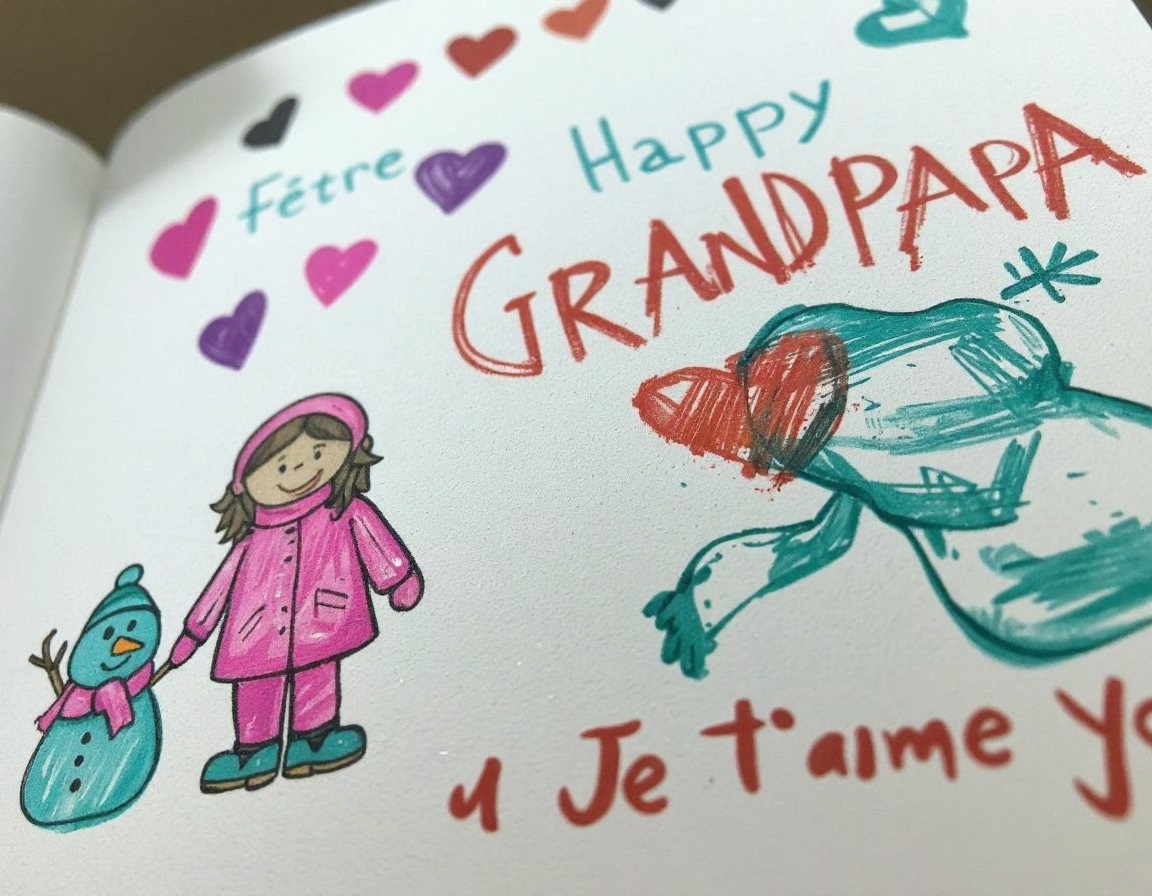 Fêtre Happy
GRANDPAPA
Je t'aime